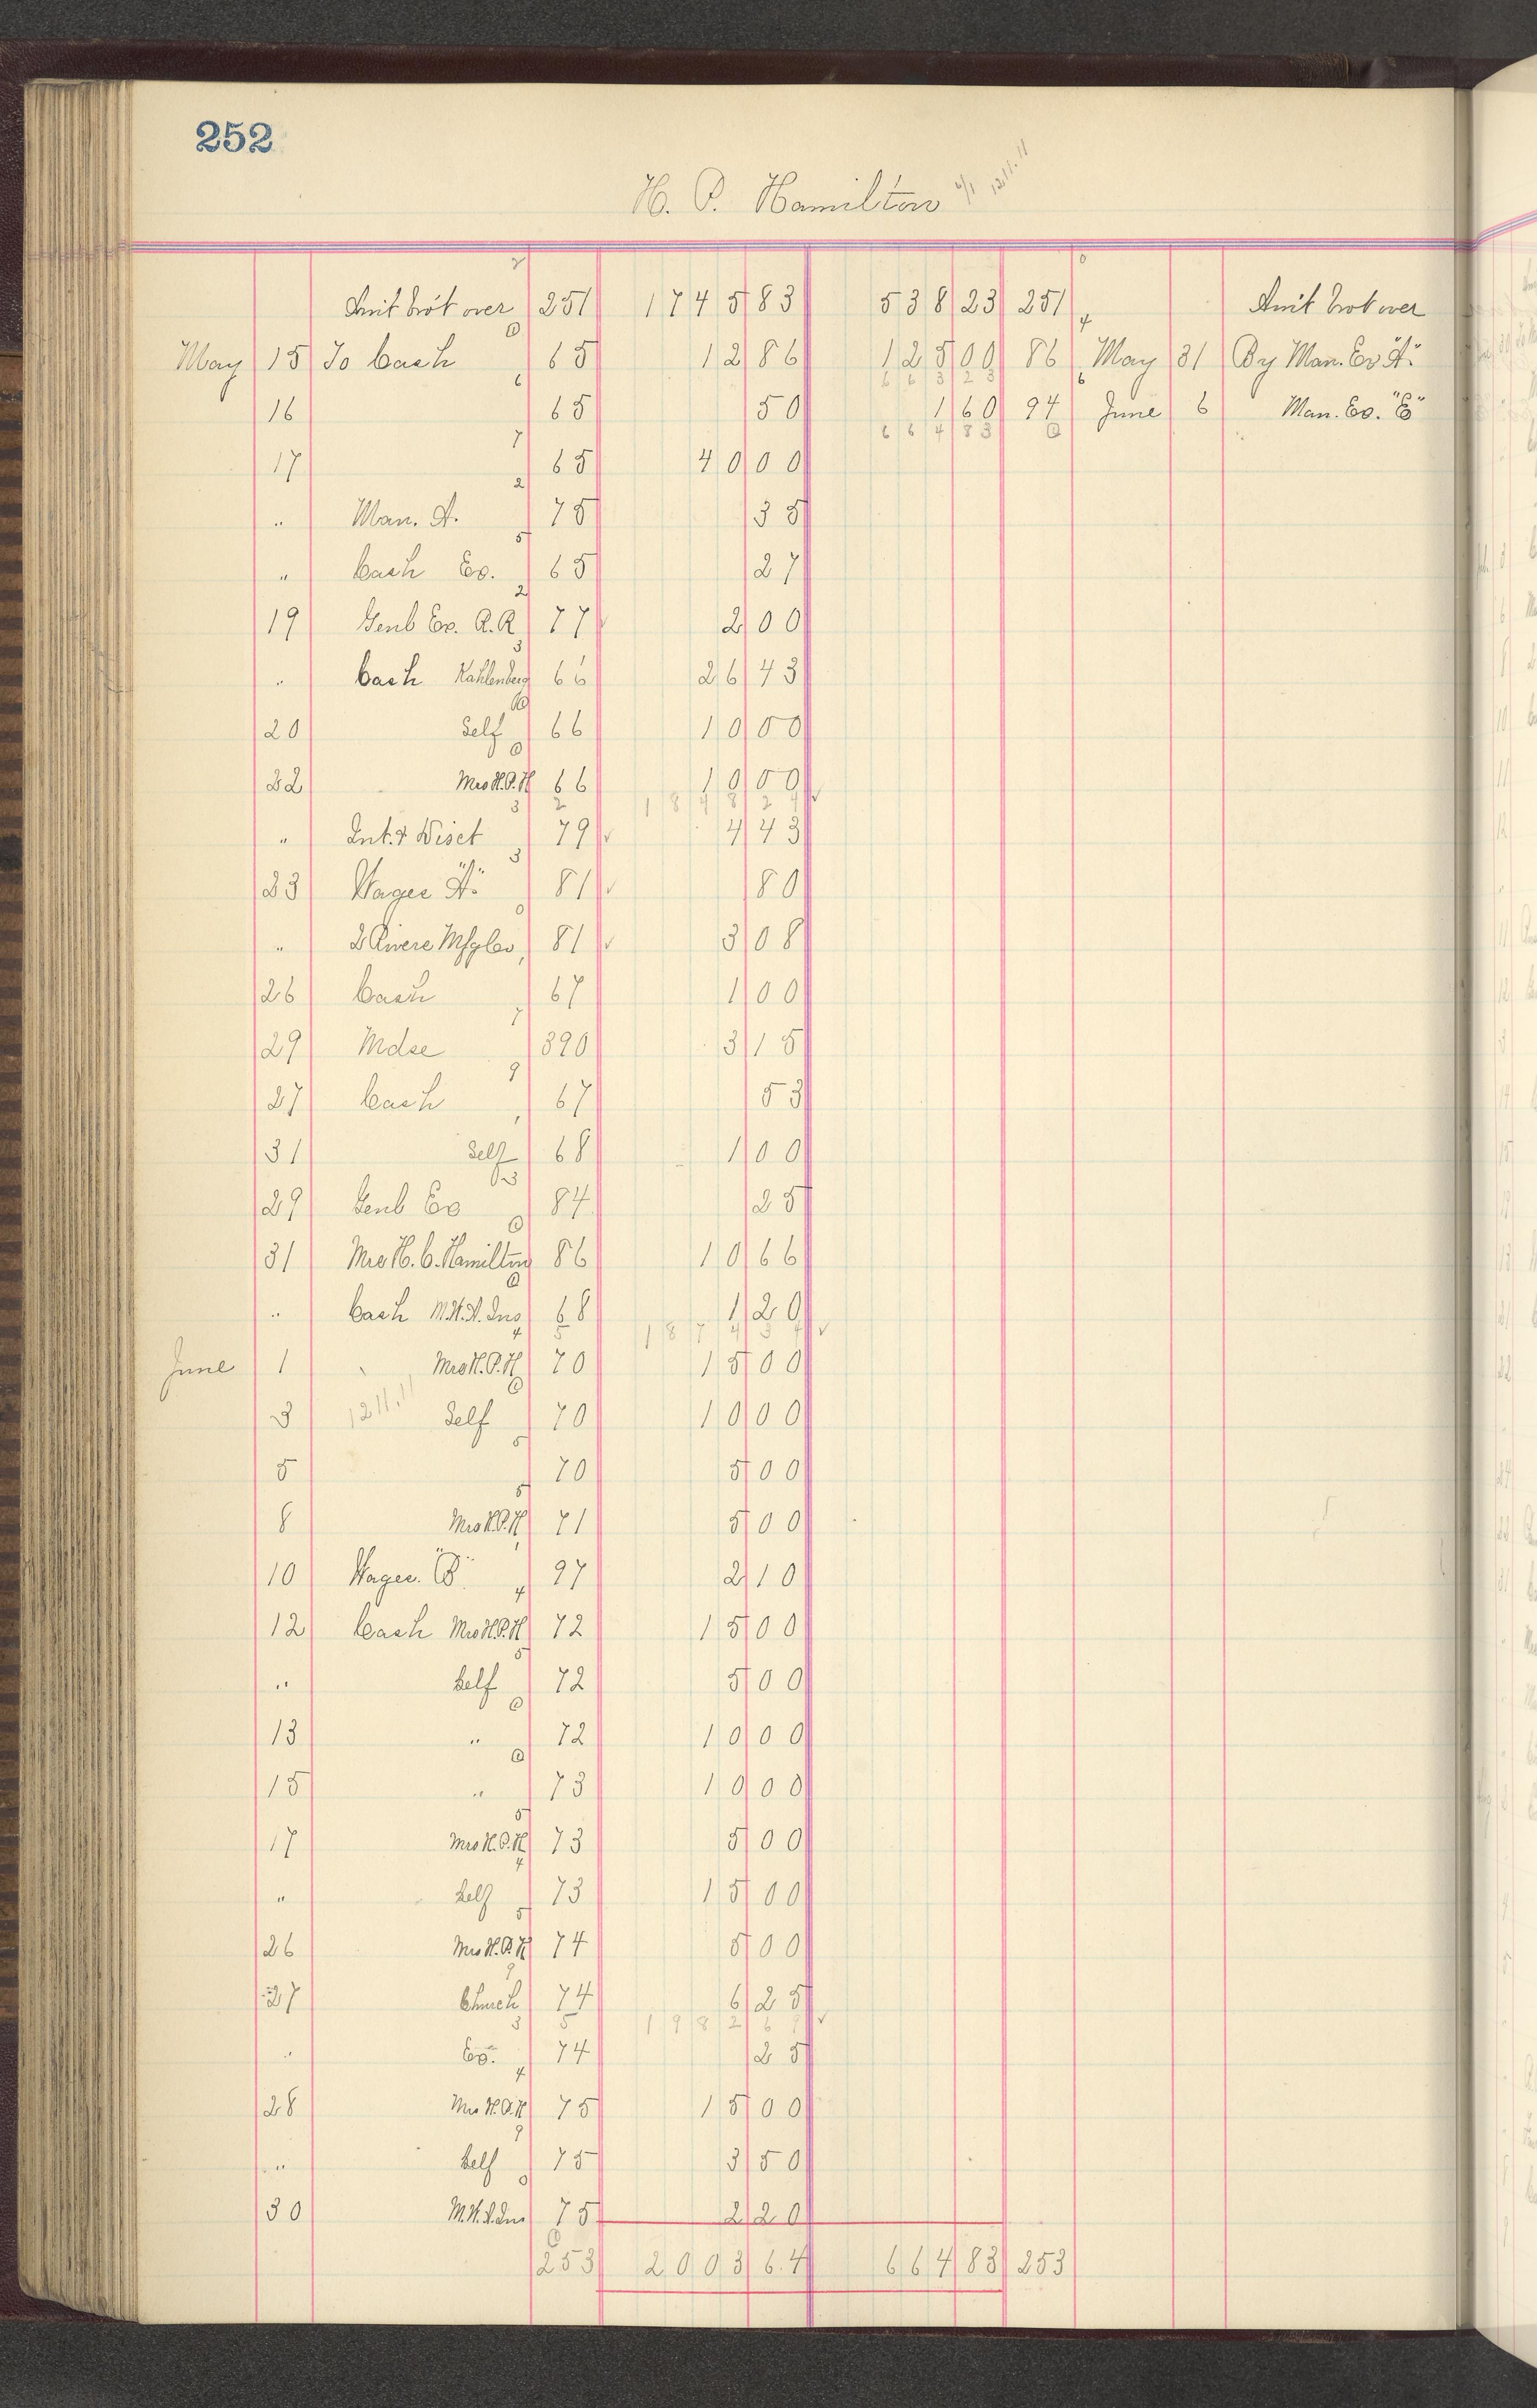 252
H. P. Hamilton
Amt brot over 251 1745 83 538 23 251 Amt brot over
May 15 To Cash 65 12 86 125 00 86 May 31 By Man. Ex "A"
663 23
16 65 50 1 60 94 June 6 Man. Ex. "E"
664 83
17 65 40 00
" Man. A. 75 35
" Cash Ex. 65 27
19 Genl Ex. R.R 77 2 00
" Cash Kahlenberg 66 26 43
20 Self 66 10 00
22 Mrs H.P.H 66 10 00
1848 24
" Int. & Disct 79 4 43
23 Wages "A" 81 80
" 2 Rivers Mfg Co 81 3 08
26 Cash 67 1 00
29 Mdse 390 3 15
27 Cash 67 53
31 Self 68 1 00
29 Genl Ex 84 25
31 Mrs H. C. Hamilton 86 10 66
" Cash M.W.A. Ins 68 1 20
1874 34
June 1 Mrs H.P.H 70 15 00
3 Self 70 10 00
5 70 5 00
8 Mrs H.P.H 71 5 00
10 Wages. "B" 97 2 10
12 Cash Mrs H.P.H 72 15 00
" Self 72 5 00
13 " 72 10 00
15 " 73 10 00
17 Mrs H.P.H 73 5 00
" Self 73 15 00
26 Mrs H.P.H 74 5 00
27 Church 74 6 25
1982 69
" Ex. 74 25
28 Mrs H.P.H 75 15 00
" Self 75 3 50
30 M.W.A. Ins 75 2 20
253 2003 64 664 83 253